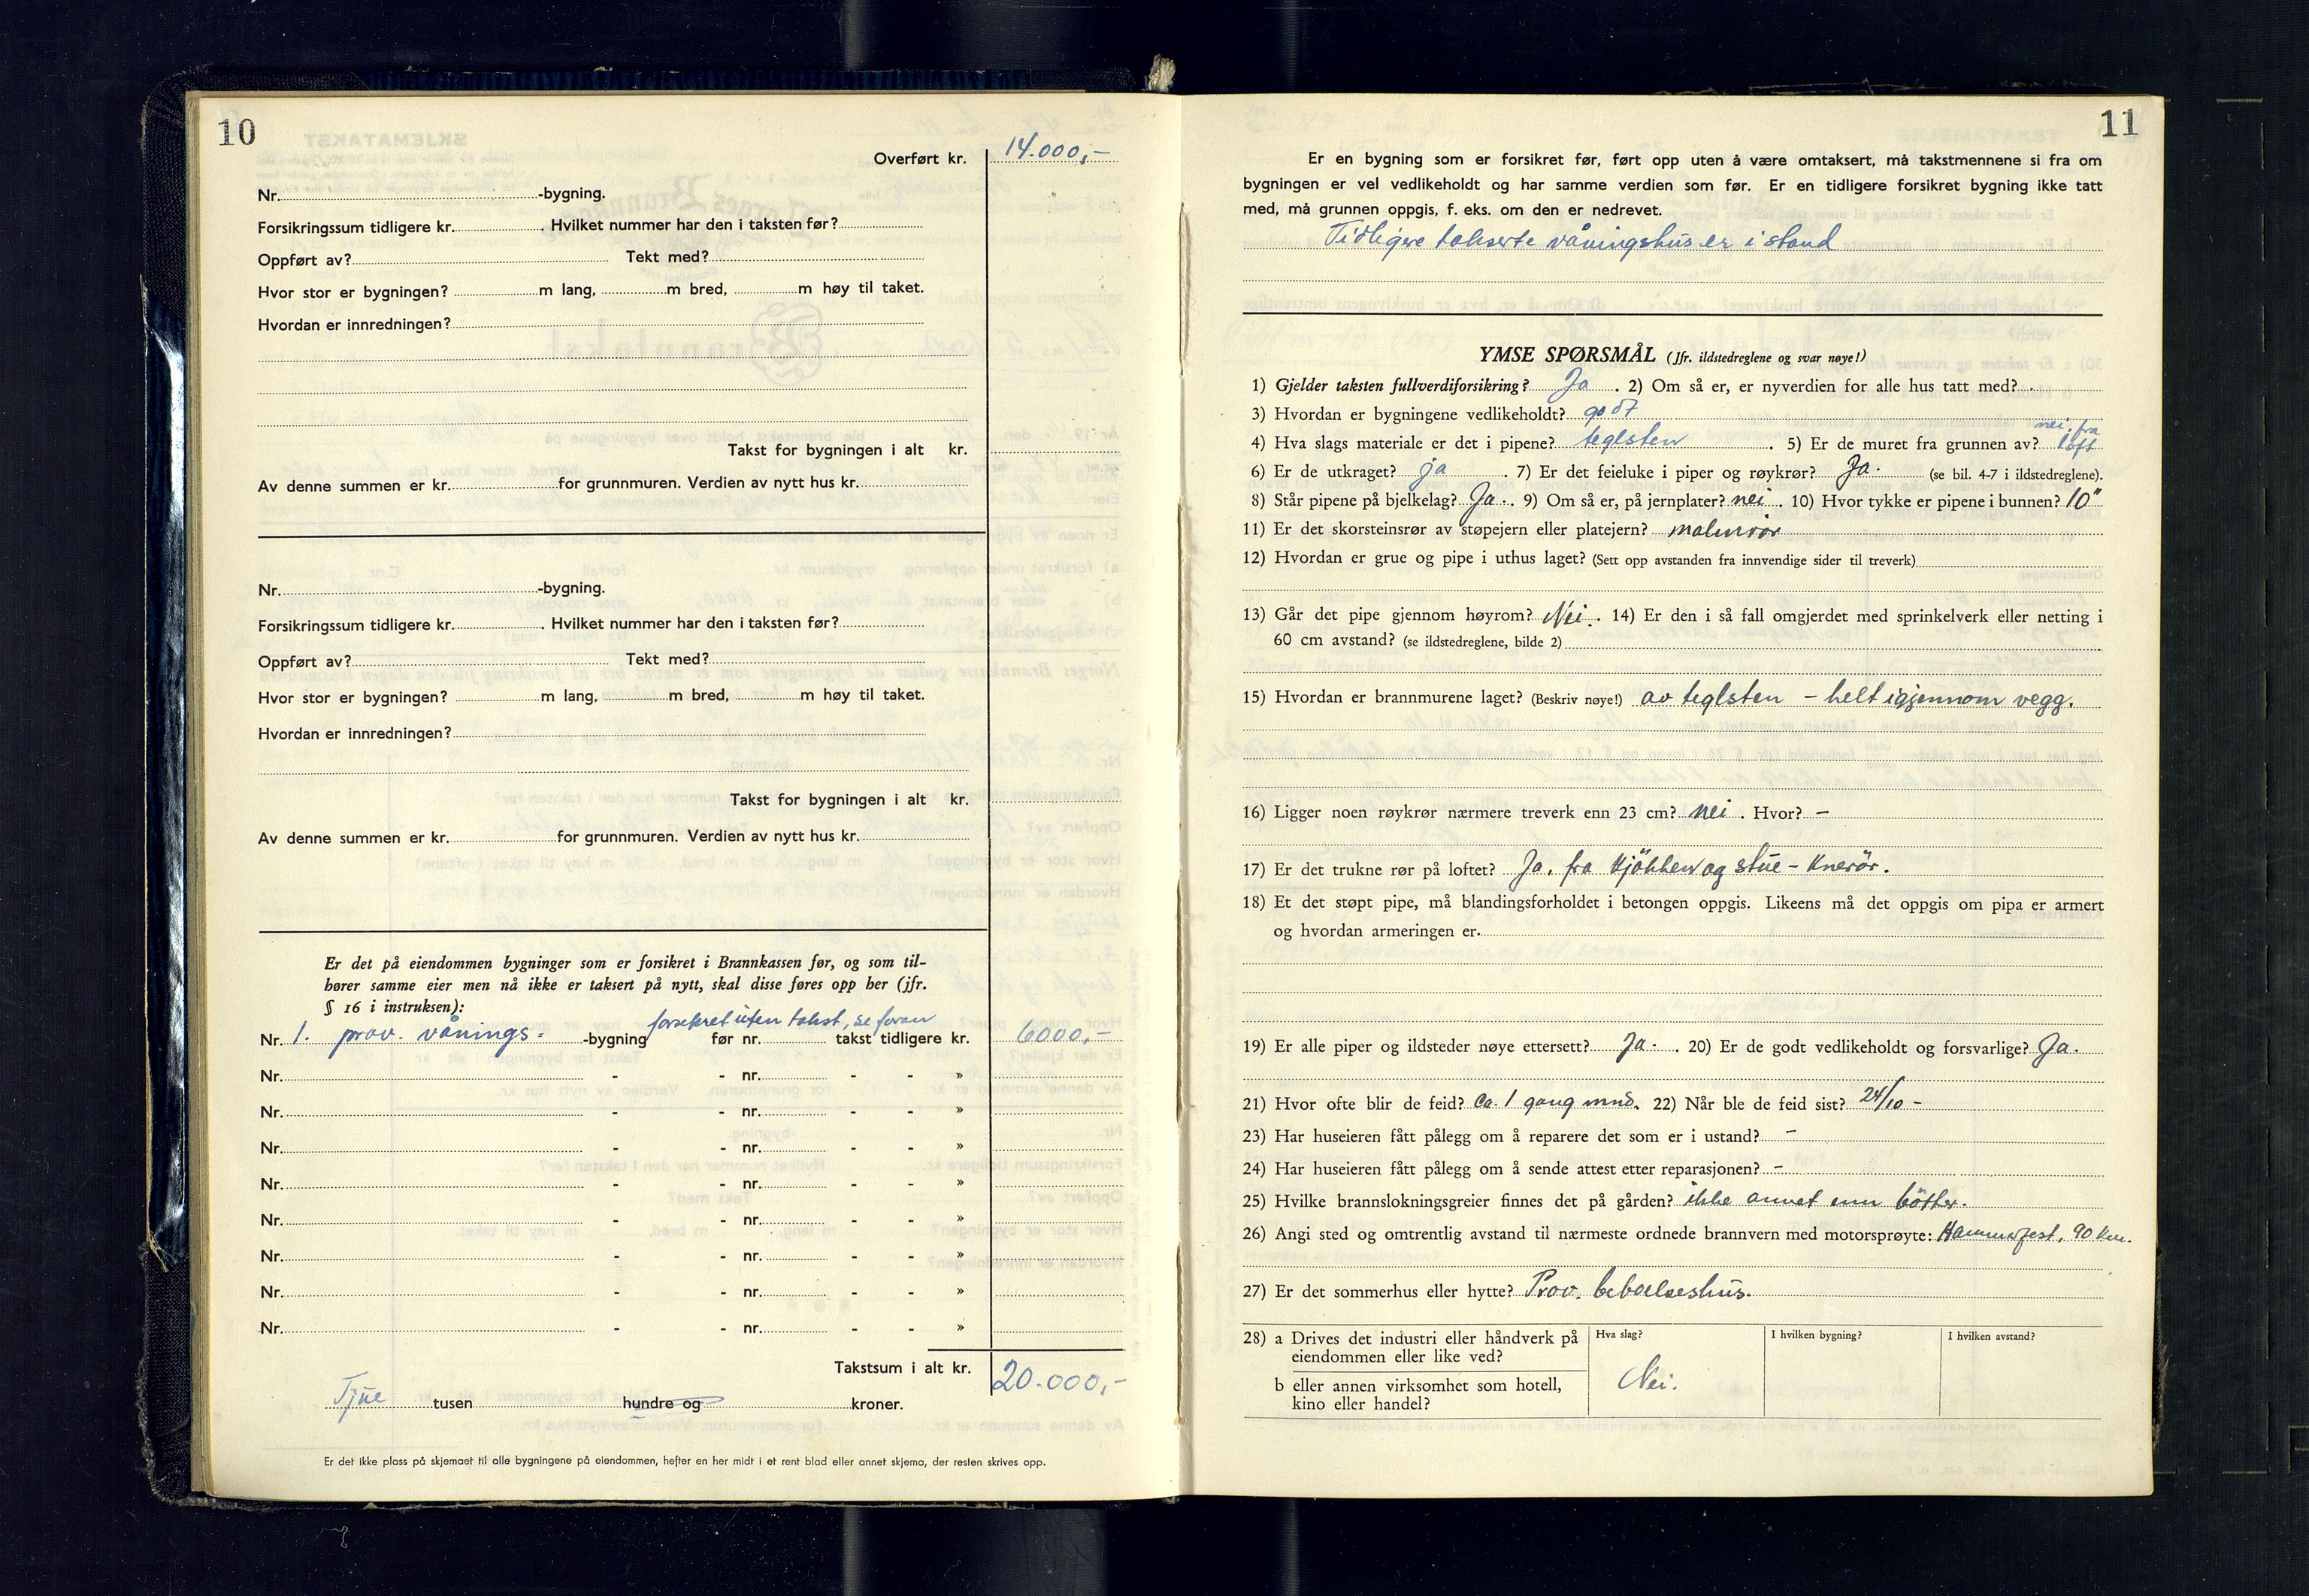 10
Overført kr. 14.000,-
Nr. -bygning.
Forsikringssum tidligere kr. . Hvilket nummer har den i taksten før?
Oppført av? Tekt med?
Hvor stor er bygningen? m lang, m bred, m høy til taket.
Hvordan er innredningen?
Takst for bygningen i alt kr.
Av denne summen er kr. for grunnmuren. Verdien av nytt hus kr.
Nr. -bygning.
Forsikringssum tidligere kr. . Hvilket nummer har den i taksten før?
Oppført av? Tekt med?
Hvor stor er bygningen? m lang, m bred, m høy til taket.
Hvordan er innredningen?
Takst for bygningen i alt kr.
Av denne summen er kr. for grunnmuren. Verdien av nytt hus kr.
Er det på eiendommen bygninger som er forsikret i Brannkassen før, og som til-
hører samme eier men nå ikke er taksert på nytt, skal disse føres opp her (jfr.
§ 16 i instruksen):
forsekret uten takst, se foran
Nr. 1. prov. vånings= -bygning før nr. takst tidligere kr. 6000,-
Nr. - - nr. - - »
Nr. - - nr. - - »
Nr. - - nr. - - »
Nr. - - nr. - - »
Nr. - - nr. - - »
Nr. - - nr. - - »
Nr. - - nr. - - »
Nr. - - nr. - - »
Takstsum i alt kr. 20.000,-
Tjue tusen hundre og kroner.
Er det ikke plass på skjemaet til alle bygningene på eiendommen, hefter en her midt i et rent blad eller annet skjema, der resten skrives opp.
11
Er en bygning som er forsikret før, ført opp uten å være omtaksert, må takstmennene si fra om
bygningen er vel vedlikeholdt og har samme verdien som før. Er en tidligere forsikret bygning ikke tatt
med, må grunnen oppgis, f. eks. om den er nedrevet.
Tidligere takserte våningshus er i stand
YMSE SPØRSMÅL (Jfr. ildstedreglene og svar nøye!)
1) Gjelder taksten fullverdiforsikring? Ja . 2) Om så er, er nyverdien for alle hus tatt med? .
3) Hvordan er bygningene vedlikeholdt? godt
4) Hva slags materiale er det i pipene? teglsten . 5) Er de muret fra grunnen av? nei, fra loft
6) Er de utkraget? ja . 7) Er det feieluke i piper og røykrør? Ja. (se bil. 4-7 i ildstedreglene).
8) Står pipene på bjelkelag? Ja. . 9) Om så er, på jernplater? nei . 10) Hvor tykke er pipene i bunnen? 10"
11) Er det skorsteinsrør av støpejern eller platejern? malmrör
12) Hvordan er grue og pipe i uthus laget? (Sett opp avstanden fra innvendige sider til treverk)
13) Går det pipe gjennom høyrom? Nei. . 14) Er den i så fall omgjerdet med sprinkelverk eller netting i
60 cm avstand? (se ildstedreglene, bilde 2)
15) Hvordan er brannmurene laget? (Beskriv nøye!) av teglsten - helt igjennom vegg.
16) Ligger noen røykrør nærmere treverk enn 23 cm? nei . Hvor? -
17) Er det trukne rør på loftet? Ja, fra kjökken og stue - knerör.
18) Et det støpt pipe, må blandingsforholdet i betongen oppgis. Likeens må det oppgis om pipa er armert
og hvordan armeringen er.
19) Er alle piper og ildsteder nøye ettersett? Ja. . 20) Er de godt vedlikeholdt og forsvarlige? Ja.
21) Hvor ofte blir de feid? Ca. 1 gang mnd. 22) Når ble de feid sist? 24/10 -
23) Har huseieren fått pålegg om å reparere det som er i ustand? -
24) Har huseieren fått pålegg om å sende attest etter reparasjonen? -
25) Hvilke brannslokningsgreier finnes det på gården? ikke annet enn bötter.
26) Angi sted og omtrentlig avstand til nærmeste ordnede brannvern med motorsprøyte: Hammerfest, 90 km.
27) Er det sommerhus eller hytte? Prov. beboelseshus.
28) a Drives det industri eller håndverk på
eiendommen eller like ved?
b eller annen virksomhet som hotell,
kino eller handel?
Hva slag? I hvilken bygning? I hvilken avstand?
Nei.